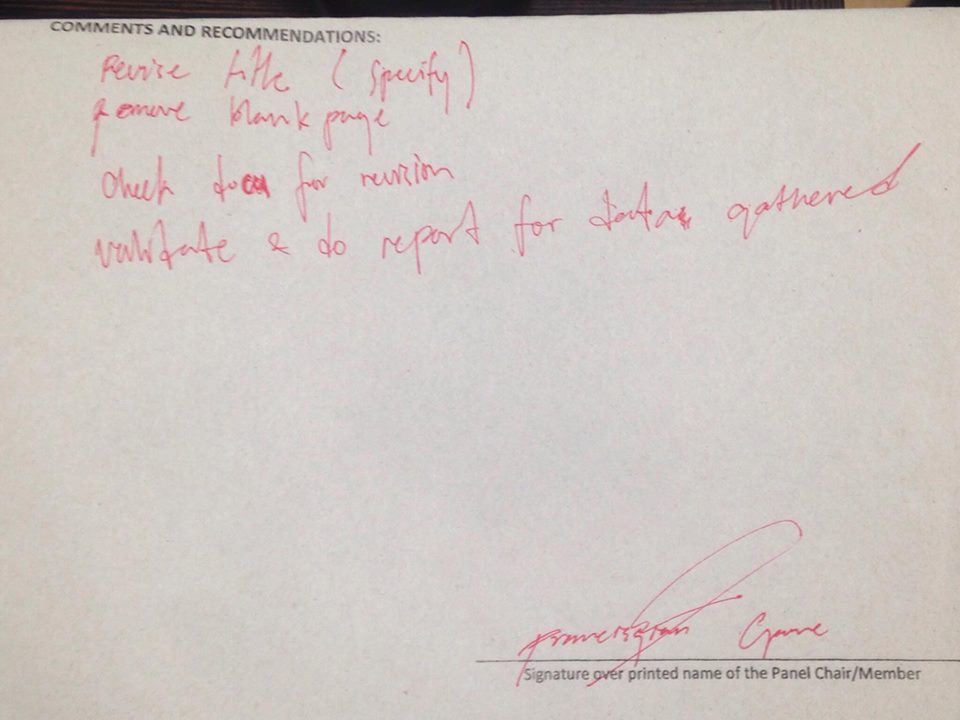 COMMENTS AND RECOMMENDATIONS:
Revise title (specify)
Remove blank page
Check docu for revision
validate & do report for data gathered
Signature over printed name of the Panel Chair/Member